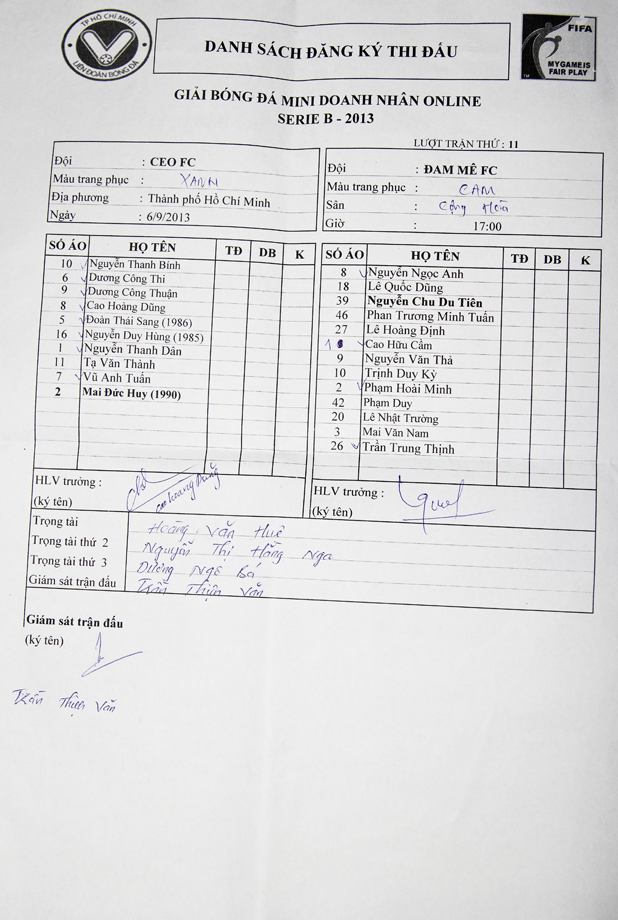 TP HỒ CHÍ MINH
LIÊN ĐOÀN BÓNG ĐÁ
DANH SÁCH ĐĂNG KÝ THI ĐẤU
FIFA
MY GAME IS
FAIR PLAY
GIẢI BÓNG ĐÁ MINI DOANH NHÂN ONLINE
SERIE B - 2013
LƯỢT TRẬN THỨ : 11
Đội : CEO FC
Màu trang phục : XANH
Địa phương : Thành phố Hồ Chí Minh
Ngày : 6/9/2013
Đội : ĐAM MÊ FC
Màu trang phục : CAM
Sân : Cộng Hòa
Giờ : 17:00
SỐ ÁO HỌ TÊN TĐ DB K
10 Nguyễn Thanh Bính
6 Dương Công Thi
9 Dương Công Thuận
8 Cao Hoàng Dũng
5 Đoàn Thái Sang (1986)
16 Nguyễn Duy Hùng (1985)
1 Nguyễn Thanh Dân
11 Tạ Văn Thành
7 Vũ Anh Tuấn
2 Mai Đức Huy (1990)
SỐ ÁO HỌ TÊN TĐ DB K
8 Nguyễn Ngọc Anh
18 Lê Quốc Dũng
39 Nguyễn Chu Du Tiên
46 Phan Trương Minh Tuấn
27 Lê Hoàng Định
Cao Hữu Cầm
9 Nguyễn Văn Thả
10 Trịnh Duy Kỳ
2 Phạm Hoài Minh
42 Phạm Duy
20 Lê Nhật Trường
3 Mai Văn Nam
26 Trần Trung Thịnh
HLV trưởng :
(ký tên)
Cao Hoàng Dũng
HLV trưởng :
(ký tên)
Trọng tài Hoàng Văn Huê
Trọng tài thứ 2 Nguyễn Thị Hằng Nga
Trọng tài thứ 3 Dương Ngô Bá
Giám sát trận đấu Trần Thiện Văn
Giám sát trận đấu
(ký tên)
Trần Thiện Văn